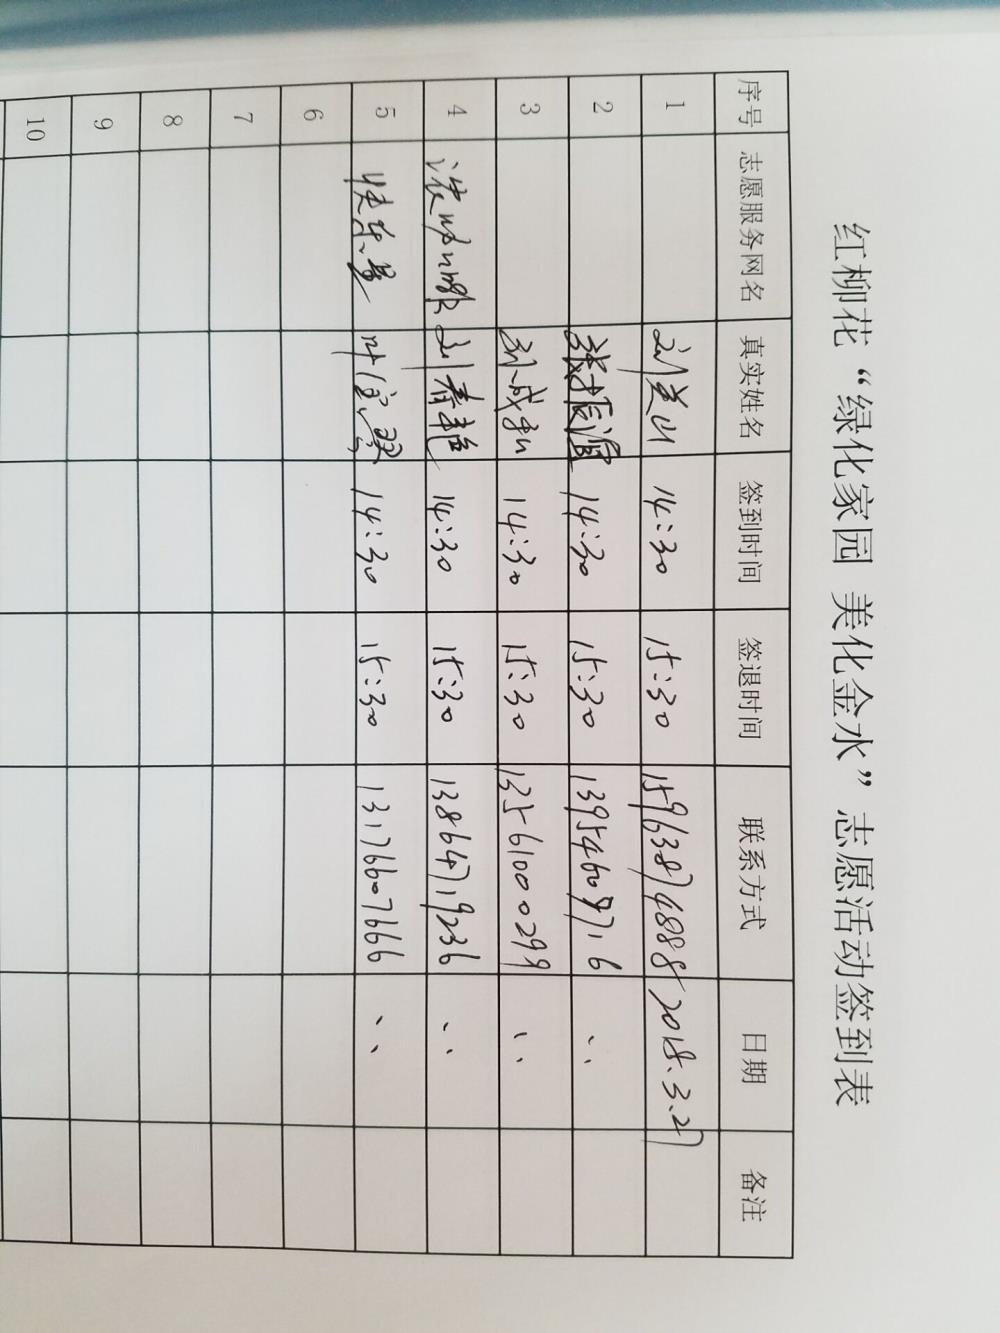 红柳花“绿化家园 美化金水”志愿活动签到表
序号 志愿服务网名 真实姓名 签到时间 签退时间 联系方式 日期 备注
1 刘美山 14:30 15:30 15963874888 2018.3.27
2 张振温 14:30 15:30 13954609716 、、
3 孙成和 14:30 15:30 13561000299 、、
4 刘春艳 14:30 15:30 13864719236 、、
5 14:30 15:30 13176607666 、、
6
7
8
9
10